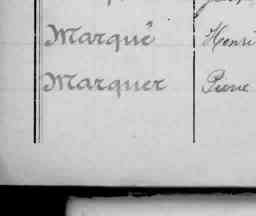 Marqué Henri
Marquer Pierre